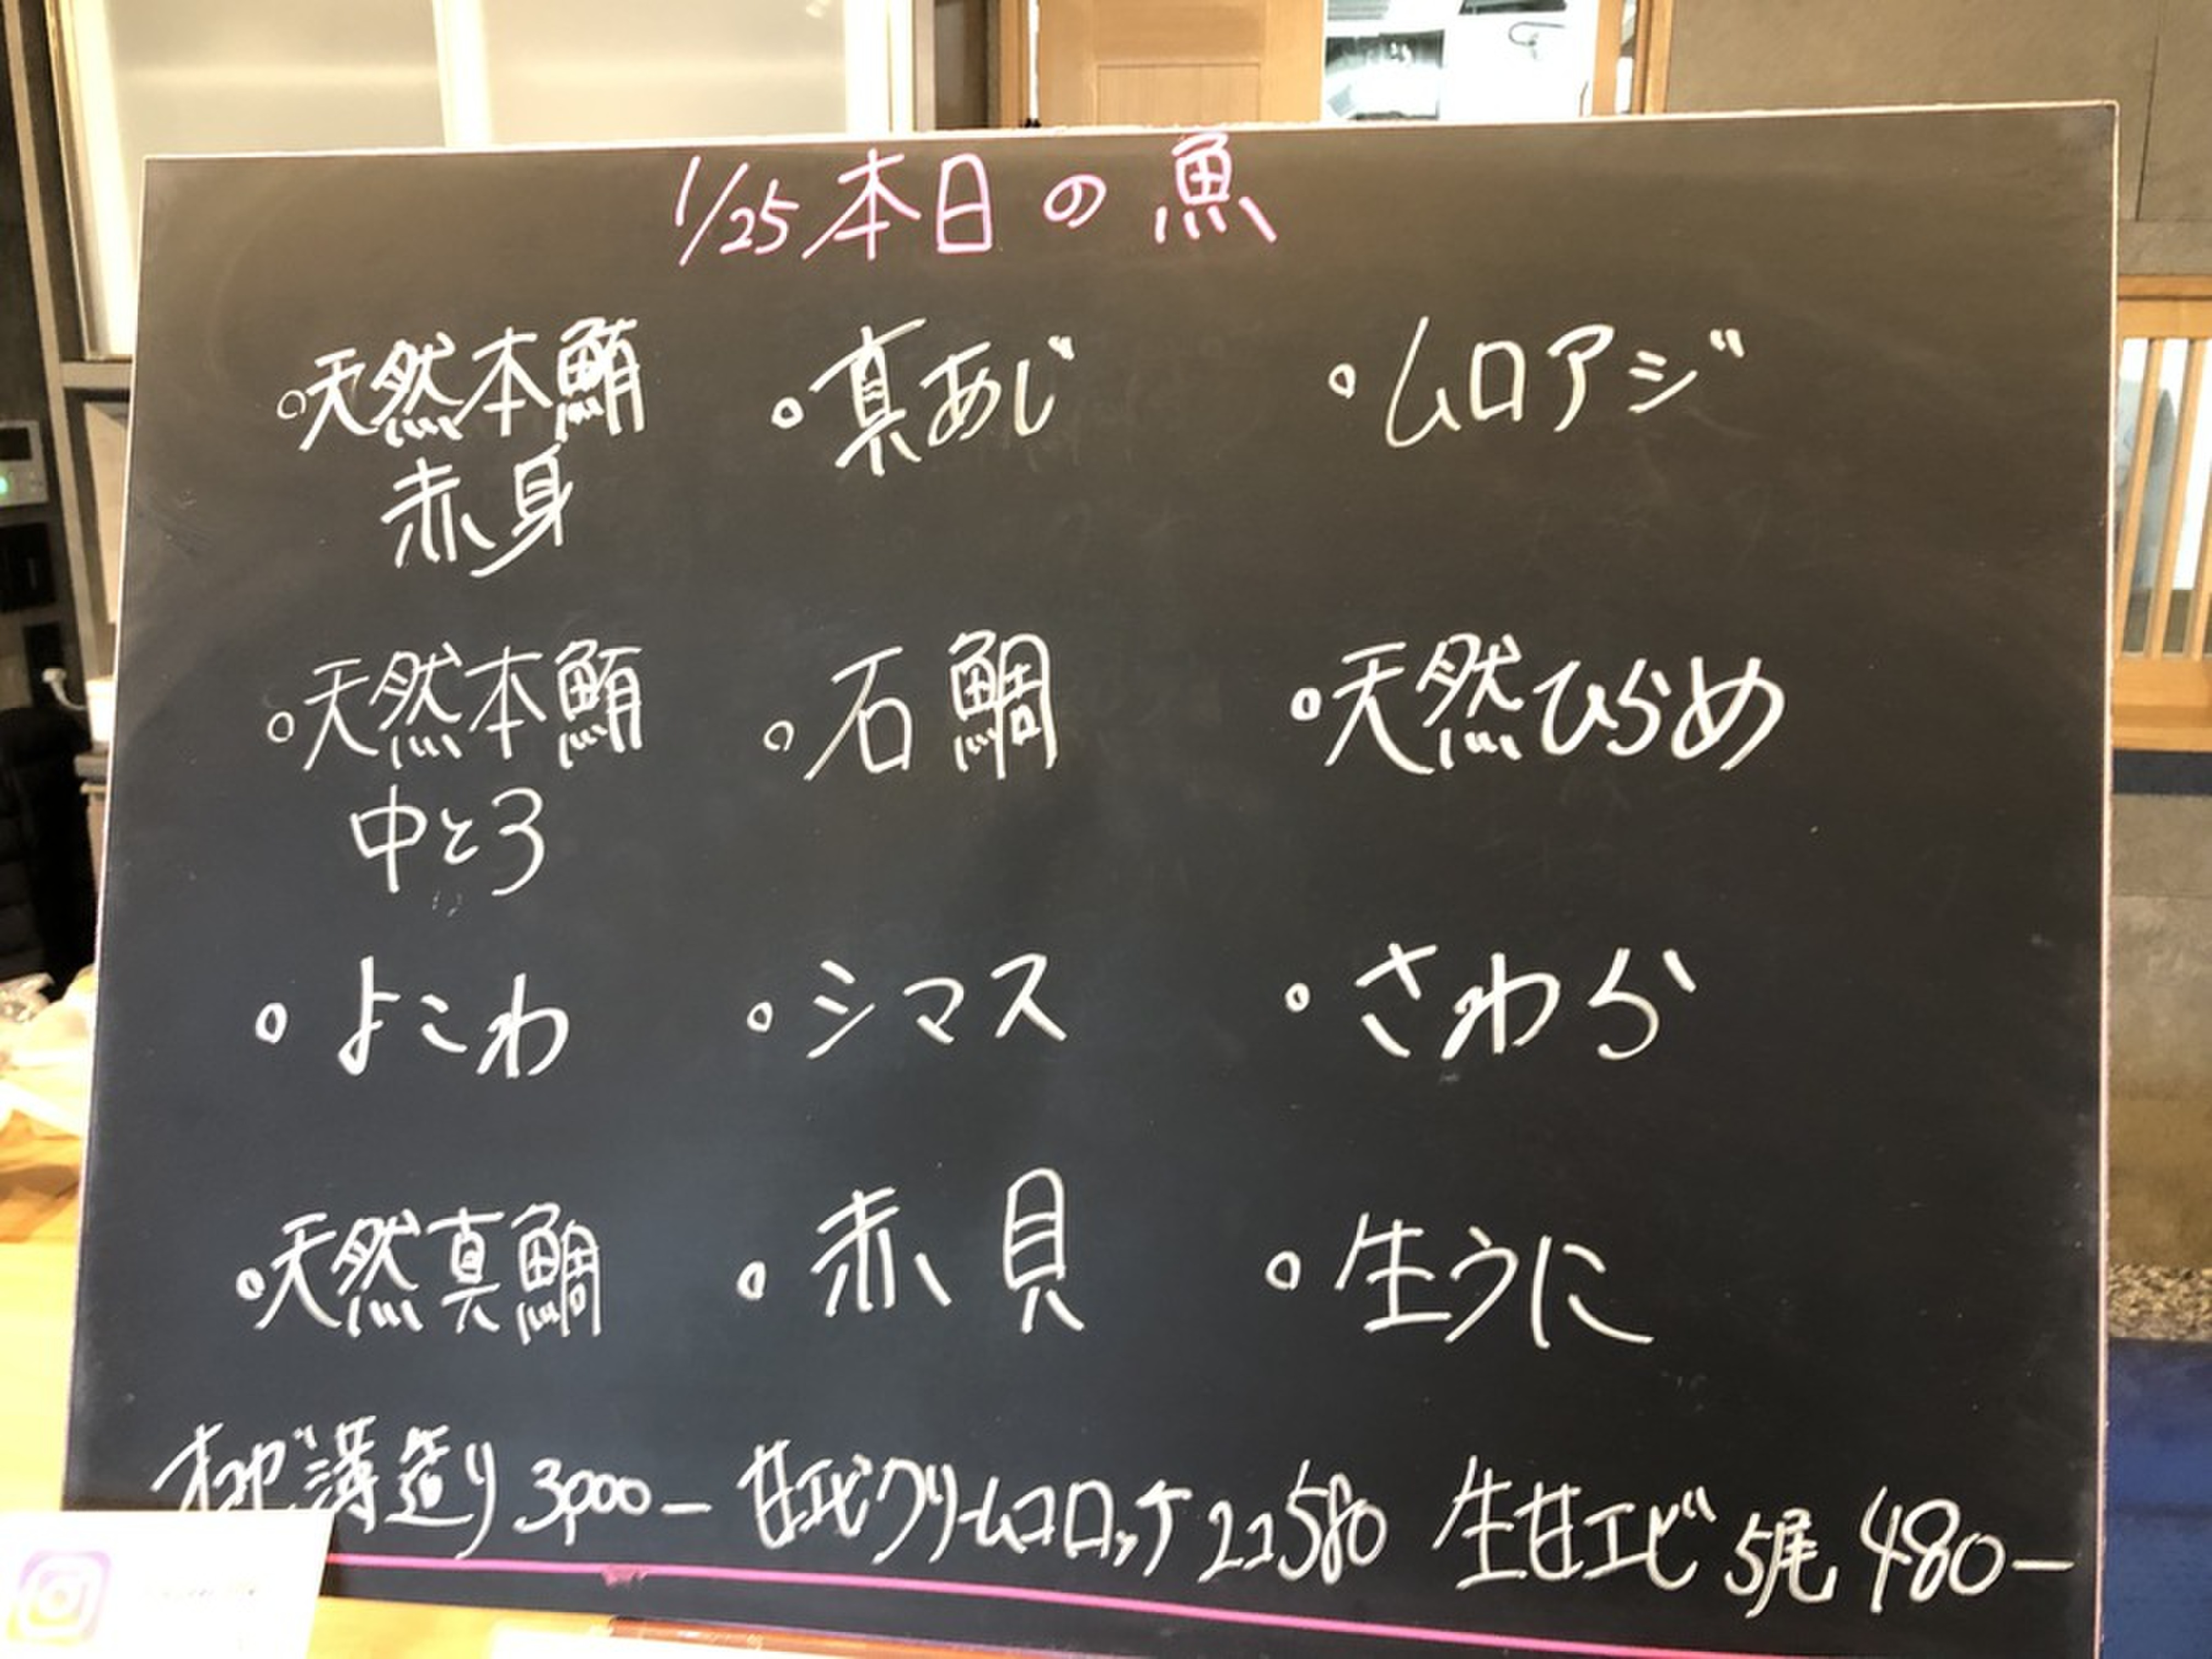 1/25 本日の魚
○天然本鮪 赤身
○真あじ
○ムロアジ
○天然本鮪 中とろ
○石鯛
○天然ひらめ
○よこわ
○シマス
○さわら
○天然真鯛
○赤貝
○生うに
薄造り 3,000ー
甘エビクリームコロッケ 2コ 580
生甘エビ 5尾 480ー